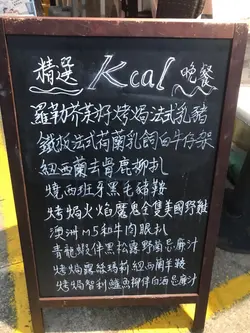 精選 Kcal 晚餐
羅勒芥茉籽烤焗法式乳豬
鐵板法式荷蘭乳飼白牛仔架
紐西蘭去骨鹿柳扒
燒西班牙黑毛豬鞍
烤焗火焰魔鬼全隻美國野雞
澳洲M5和牛肉眼扒
青龍蝦伴黑松露野菌忌廉汁
烤焗露絲瑪莉紐西蘭羊鞍
烤焗智利鱸魚柳伴白酒忌廉汁